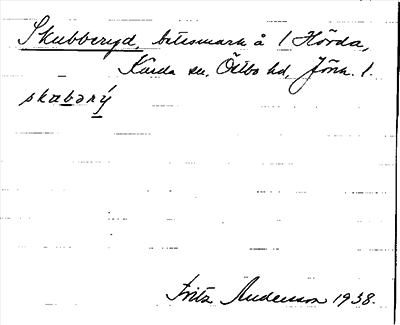 Skubberyd, betesmark å 1 Hörda,
Kärda sn. Östbo hd, Jönk. l.
skubərý
Fritz Andersson 1938.